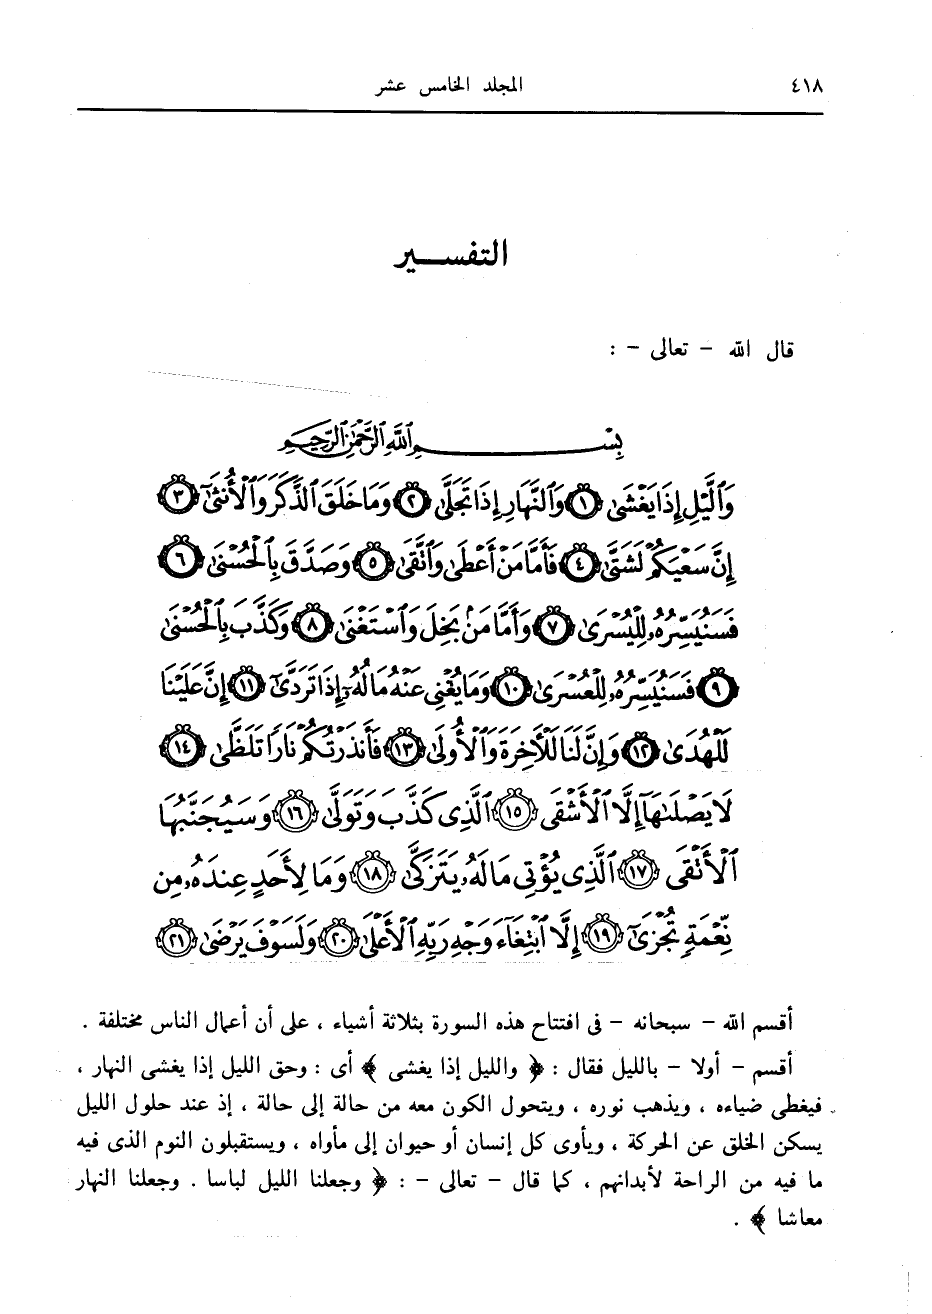 ٤١٨ المجلد الخامس عشر
التفسـير
قال الله – تعالى – :
بِسْمِ ٱللَّهِ ٱلرَّحْمَٰنِ ٱلرَّحِيمِ
وَٱلَّيْلِ إِذَا يَغْشَىٰ ١ وَٱلنَّهَارِ إِذَا تَجَلَّىٰ ٢ وَمَا خَلَقَ ٱلذَّكَرَ وَٱلْأُنثَىٰٓ ٣
إِنَّ سَعْيَكُمْ لَشَتَّىٰ ٤ فَأَمَّا مَنْ أَعْطَىٰ وَٱتَّقَىٰ ٥ وَصَدَّقَ بِٱلْحُسْنَىٰ ٦
فَسَنُيَسِّرُهُۥ لِلْيُسْرَىٰ ٧ وَأَمَّا مَنۢ بَخِلَ وَٱسْتَغْنَىٰ ٨ وَكَذَّبَ بِٱلْحُسْنَىٰ
٩ فَسَنُيَسِّرُهُۥ لِلْعُسْرَىٰ ١٠ وَمَا يُغْنِى عَنْهُ مَالُهُۥٓ إِذَا تَرَدَّىٰٓ ١١ إِنَّ عَلَيْنَا
لَلْهُدَىٰ ١٢ وَإِنَّ لَنَا لَلْأَخِرَةَ وَٱلْأُولَىٰ ١٣ فَأَنذَرْتُكُمْ نَارًا تَلَظَّىٰ ١٤
لَا يَصْلَىٰهَآ إِلَّا ٱلْأَشْقَى ١٥ ٱلَّذِى كَذَّبَ وَتَوَلَّىٰ ١٦ وَسَيُجَنَّبُهَا
ٱلْأَتْقَى ١٧ ٱلَّذِى يُؤْتِى مَالَهُۥ يَتَزَكَّىٰ ١٨ وَمَا لِأَحَدٍ عِندَهُۥ مِن
نِّعْمَةٍ تُجْزَىٰٓ ١٩ إِلَّا ٱبْتِغَآءَ وَجْهِ رَبِّهِ ٱلْأَعْلَىٰ ٢٠ وَلَسَوْفَ يَرْضَىٰ ٢١
أقسم الله – سبحانه – فى افتتاح هذه السورة بثلاثة أشياء ، على أن أعمال الناس مختلفة .
أقسم – أولا – بالليل فقال : ﴿ والليل إذا يغشى ﴾ أى : وحق الليل إذا يغشى النهار ،
فيغطى ضياءه ، ويذهب نوره ، ويتحول الكون معه من حالة إلى حالة ، إذ عند حلول الليل
يسكن الخلق عن الحركة ، ويأوى كل إنسان أو حيوان إلى مأواه ، ويستقبلون النوم الذى فيه
ما فيه من الراحة لأبدانهم ، كما قال – تعالى – : ﴿ وجعلنا الليل لباسا . وجعلنا النهار
معاشا ﴾ .